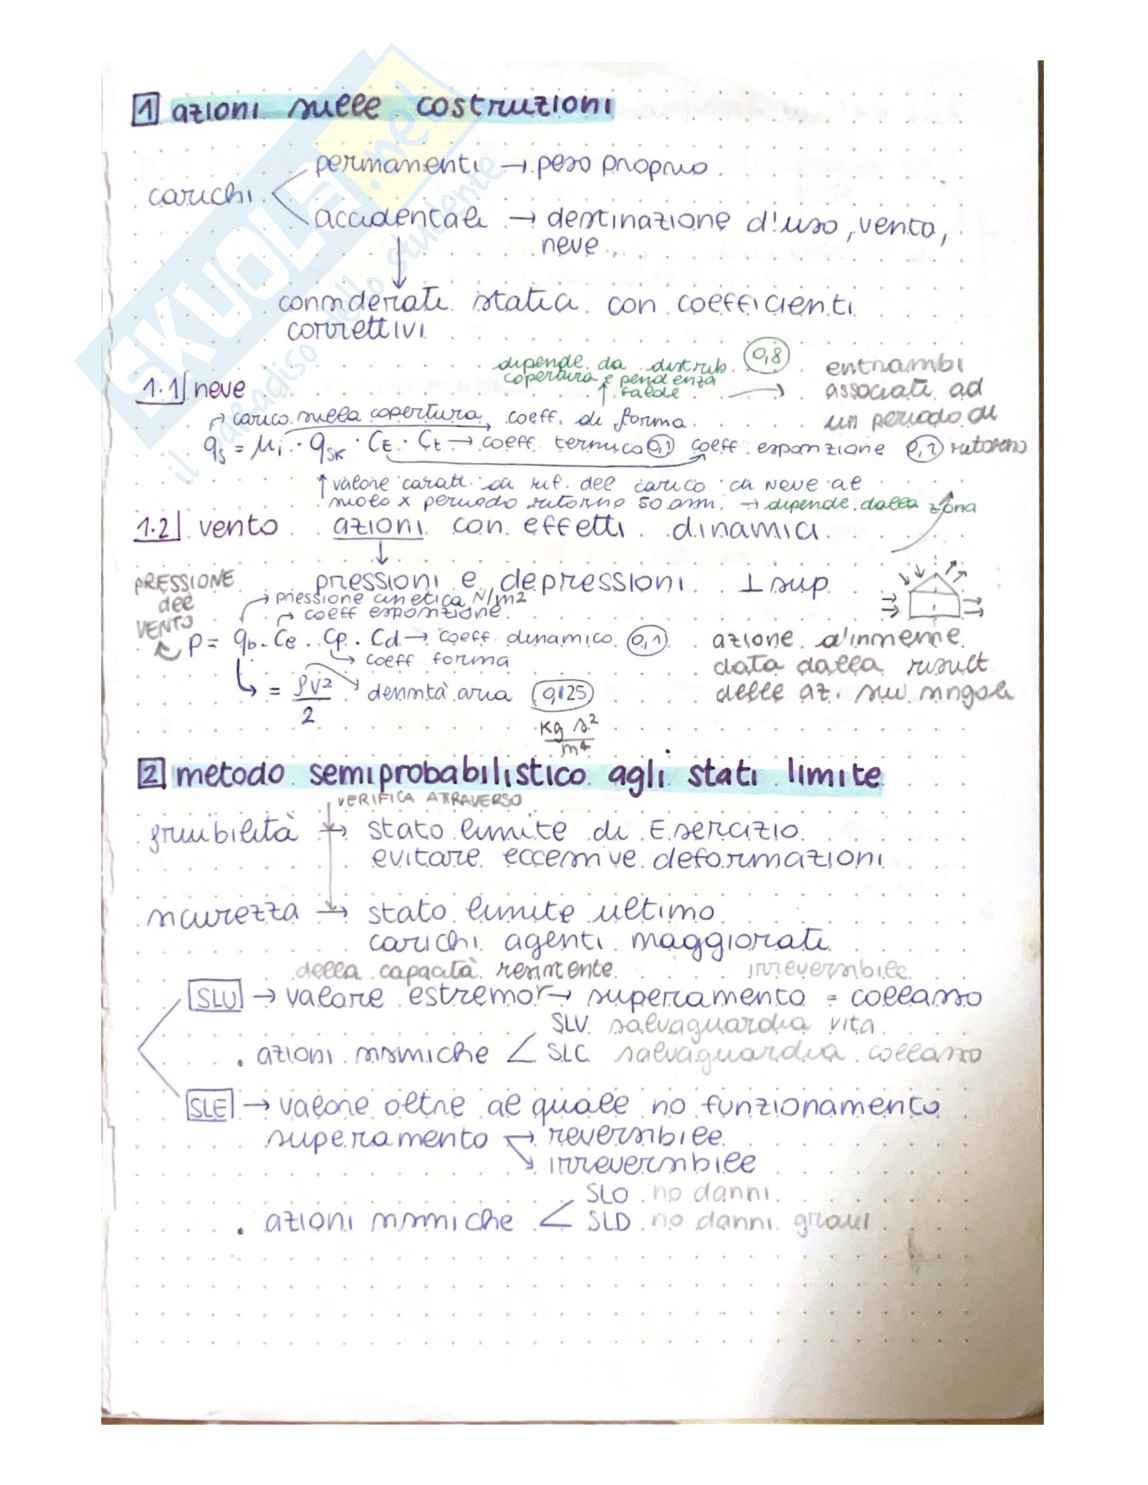 1 azioni sulle costruzioni
permanenti → peso proprio
carichi
accidentali → destinazione d'uso, vento,
neve..
considerati statici con coefficienti
correttivi
dipende da distrib. 0,8 entrambi
copertura e pendenza
falde → associati ad
1.1 neve
carico sulla copertura, coeff. di forma un periodo di
qs = μi · qsk · CE · Ct → coeff termico 0,1 coeff esposizione 0,1 ritorno
↑ valore caratt. di rif. del carico di neve al
suolo x periodo ritorno 50 anni → dipende dalla zona
1.2 vento azioni con effetti dinamici
pressioni e depressioni ⊥ sup
PRESSIONE
del
VENTO
pressione cinetica N/m2
coeff esposizione
p = qb · Ce · Cp · Cd → coeff dinamico 0,1 azione d'insieme
coeff forma data dalla risult
= ρv²/2 densità aria 0,125 delle az. sui singoli
kg s²/m⁴
2 metodo semiprobabilistico agli stati limite
VERIFICA ATRAVERSO
fruibilità → stato limite di Esercizio
evitare eccessive deformazioni
sicurezza → stato limite ultimo
carichi agenti maggiorati
della capacità resistente irreversibile
SLU → valore estremo → superamento = collasso
SLV salvaguardia vita
. azioni sismiche < SLC salvaguardia collasso
SLE → valore oltre al quale no funzionamento
superamento → reversibile
irreversibile
SLO no danni
. azioni sismiche < SLD no danni gravi
SKUOLA.net
il paradiso dello studente